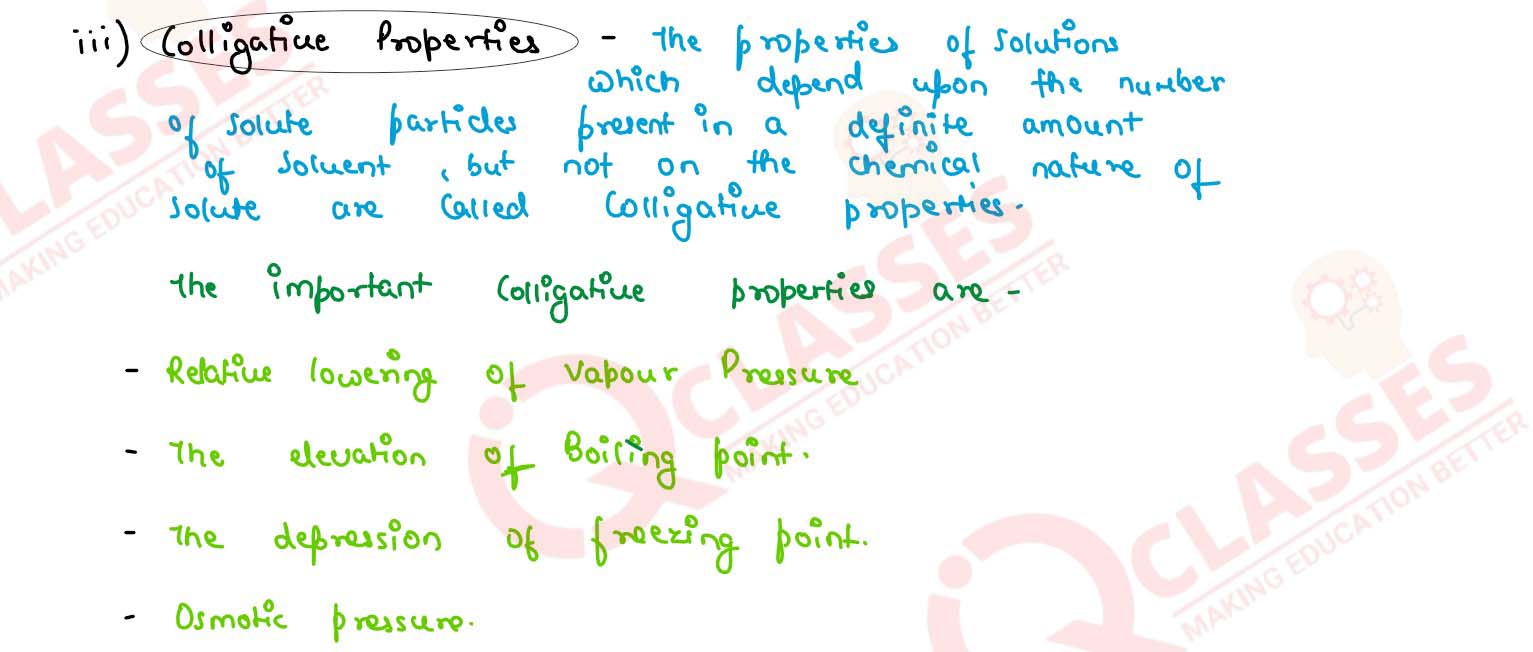 iii) Colligative Properties - The properties of solutions
which depend upon the number
of solute particles present in a definite amount
of solvent, but not on the chemical nature of
solute are called Colligative properties.
The important Colligative properties are -
- Relative lowering of Vapour Pressure
- The elevation of Boiling point.
- The depression of freezing point.
- Osmotic pressure.
CLASSES
MAKING EDUCATION BETTER
CLASSES
MAKING EDUCATION BETTER
CLASSES
MAKING EDUCATION BETTER